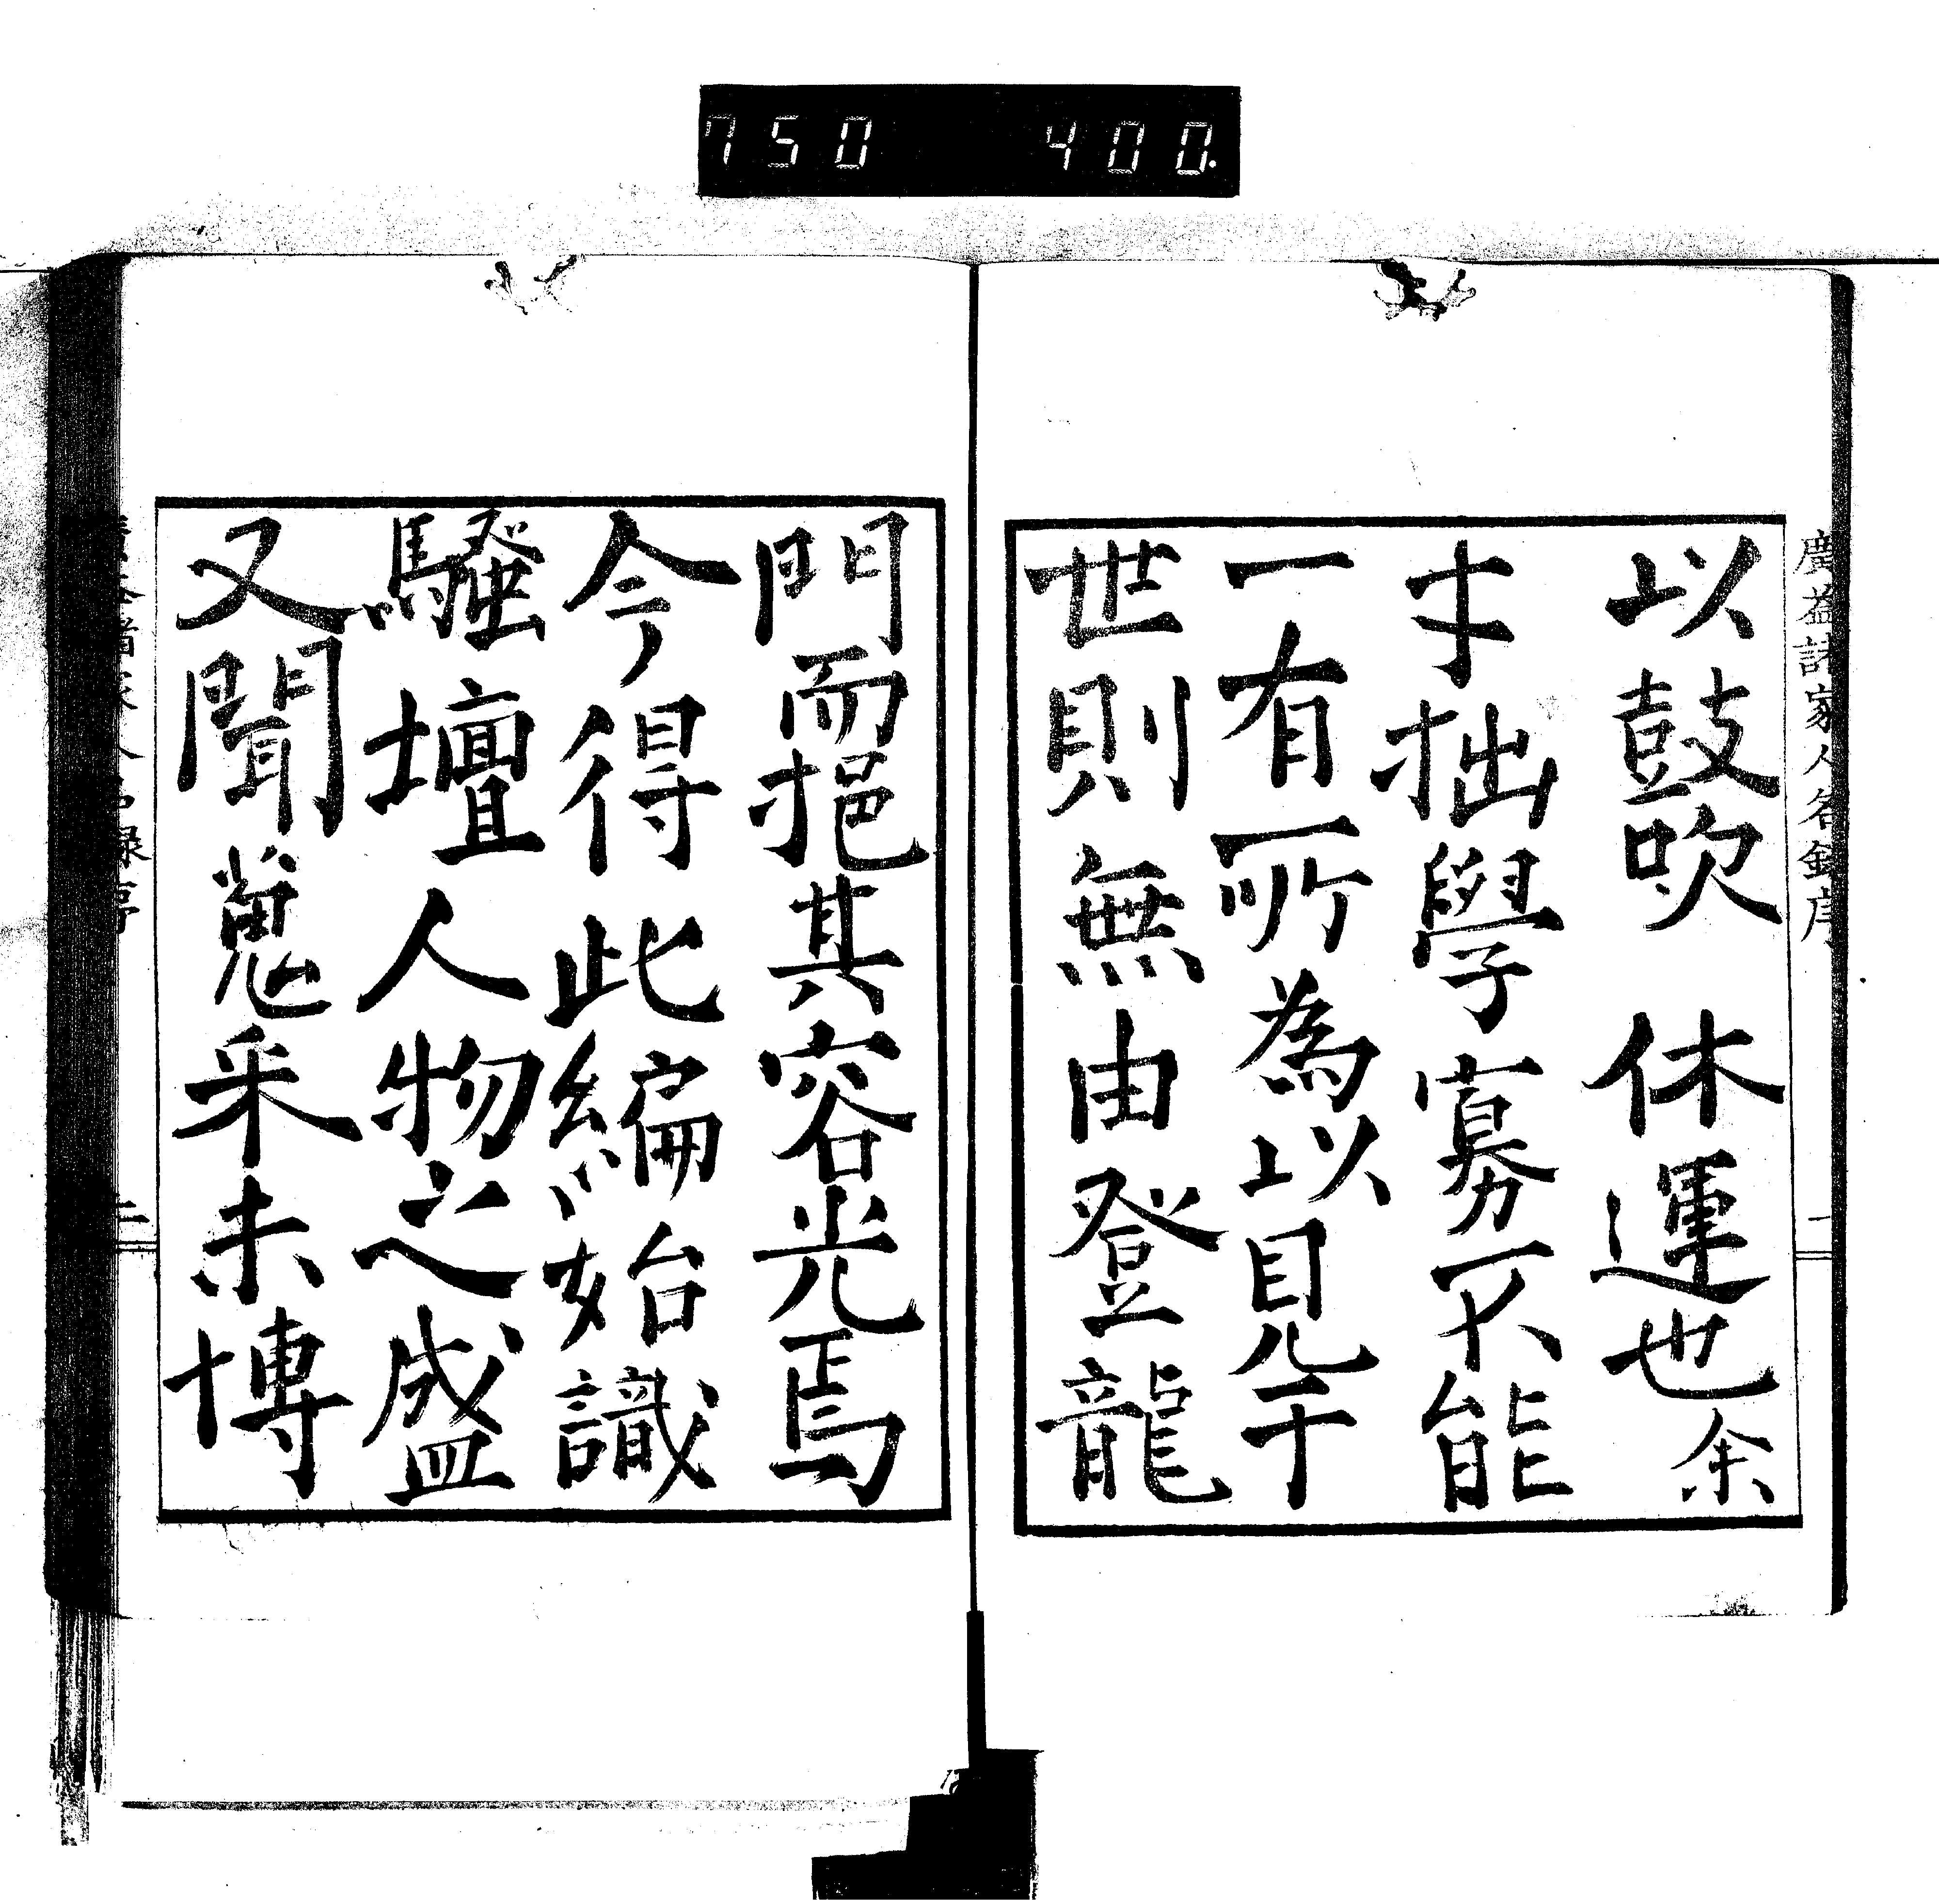 750 400.
廣益諸家人名録序 一
以鼓吹 休運也余
才拙學寡不能
一有所為以見于
世則無由登龍
門而挹其容光焉
今得此編始識
騷壇人物之盛
又聞蒐采未博
諸家人名録序 二